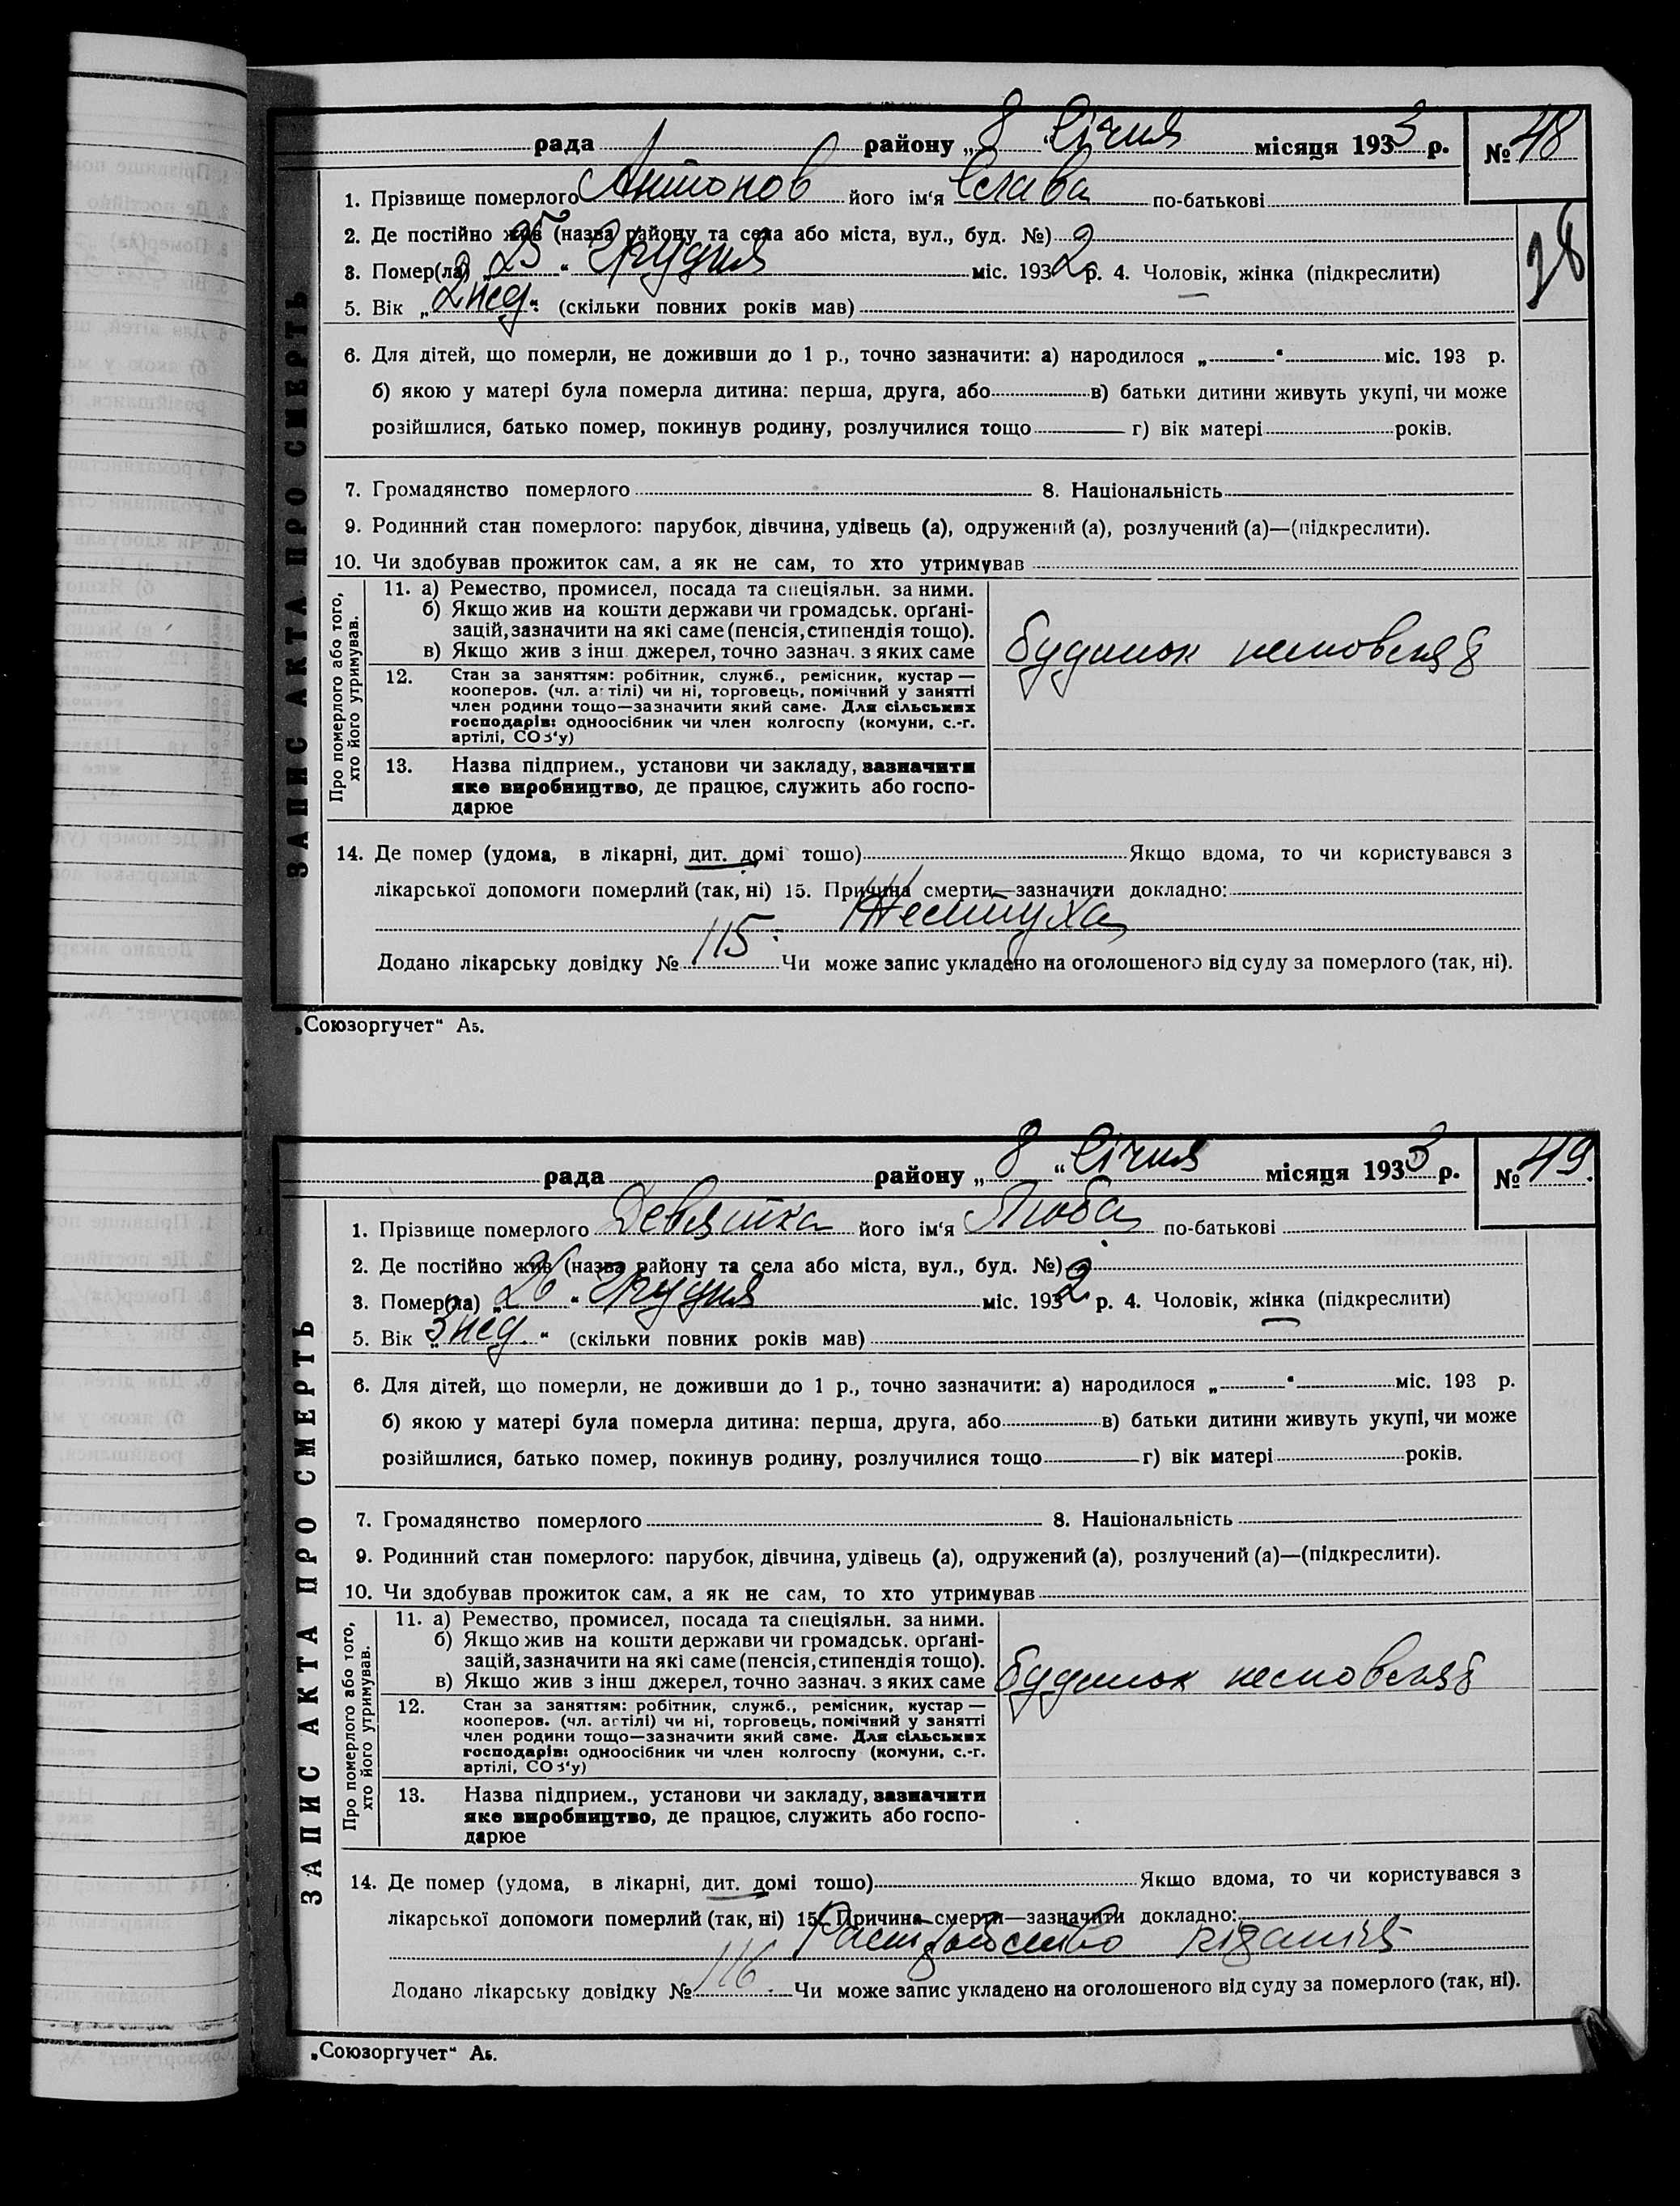 рада районy „8“ Січня місяця 1933 р. № 48
1. Прізвище померлого Антонов його ім'я Слава по-батькові
28
2. Де постійно жив (назва району та села або міста, вул., буд. №)
3. Помер(ла) „25“ Грудня міс. 1932 р. 4. Чоловік, жінка (підкреслити)
5. Вік „2 нед.“ (скільки повних років мав)
6. Для дітей, що померли, не доживши до 1 р., точно зазначити: а) народилося „ “ міс. 193 р.
б) якою у матері була померла дитина: перша, друга, або в) батьки дитини живуть укупі, чи може
розійшлися, батько помер, покинув родину, розлучилися тощо г) вік матері років.
7. Громадянство померлого 8. Національність
9. Родинний стан померлого: парубок, дівчина, удівець (а), одружений (а), розлучений (а)—(підкреслити).
10. Чи здобував прожиток сам, а як не сам, то хто утримував
ЗАПИС АКТА ПРО СМЕРТЬ
Про померлого або того,
хто його утримував.
11. а) Ремество, промисел, посада та спеціяльн. за ними.
б) Якщо жив на кошти держави чи громадськ. орґані-
зацій, зазначити на які саме (пенсія, стипендія тощо).
в) Якщо жив з інш. джерел, точно зазнач. з яких саме
будинок немовеняв
12. Стан за заняттям: робітник, служб., ремісник, кустар—
кооперов. (чл. артілі) чи ні, торговець, помічний у занятті
член родини тощо—зазначити який саме. Для сільських
господарів: одноосібник чи член колгоспу (комуни, с.-г.
артілі, СОЗ'у)
13. Назва підприєм., установи чи закладу, зазначити
яке виробництво, де працює, служить або госпо-
дарює
14. Де помер (удома, в лікарні, дит. домі тошо) Якщо вдома, то чи користувався з
лікарської допомоги померлий (так, ні) 15. Причина смерти—зазначити докладно:
Жовтуха
Додано лікарську довідку № 115. Чи може запис укладено на оголошеного від суду за померлого (так, ні).
„Союзоргучет“ А5.
рада району „8“ Січня місяця 1933 р. № 49.
1. Прізвище померлого Девятка його ім'я Люба по-батькові
2. Де постійно жив (назва району та села або міста, вул., буд. №)
3. Помер(ла) „26“ Грудня міс. 1932 р. 4. Чоловік, жінка (підкреслити)
5. Вік „3 нед.“ (скільки повних років мав)
6. Для дітей, що померли, не доживши до 1 р., точно зазначити: а) народилося „ “ міс. 193 р.
б) якою у матері була померла дитина: перша, друга, або в) батьки дитини живуть укупі, чи може
розійшлися, батько помер, покинув родину, розлучилися тощо г) вік матері років.
7. Громадянство померлого 8. Національність
9. Родинний стан померлого: парубок, дівчина, удівець (а), одружений (а), розлучений (а)—(підкреслити).
10. Чи здобував прожиток сам, а як не сам, то хто утримував
ЗАПИС АКТА ПРО СМЕРТЬ
Про померлого або того,
хто його утримував.
11. а) Ремество, промисел, посада та спеціяльн. за ними.
б) Якщо жив на кошти держави чи громадськ. орґані-
зацій, зазначити на які саме (пенсія, стипендія тощо).
в) Якщо жив з інш. джерел, точно зазнач. з яких саме
будинок немовеняв
12. Стан за заняттям: робітник, служб., ремісник, кустар—
кооперов. (чл. артілі) чи ні, торговець, помічний у занятті
член родини тощо—зазначити який саме. Для сільських
господарів: одноосібник чи член колгоспу (комуни, с.-г.
артілі, СОЗ'у)
13. Назва підприєм., установи чи закладу, зазначити
яке виробництво, де працює, служить або госпо-
дарює
14. Де помер (удома, в лікарні, дит. домі тошо) Якщо вдома, то чи користувався з
лікарської допомоги померлий (так, ні) 15. Причина смерти—зазначити докладно:
Додано лікарську довідку № 116. Чи може запис укладено на оголошеного від суду за померлого (так, ні).
„Союзоргучет“ А5.